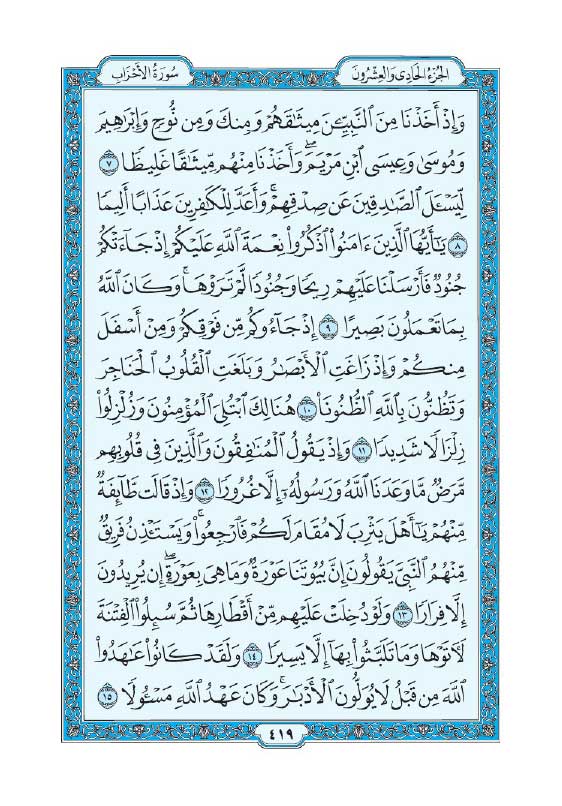 الجُزْءُ الحَادِي وَالعِشْرُونَ
سُورَةُ الأَحْزَابِ
وَإِذْ أَخَذْنَا مِنَ ٱلنَّبِيِّـۧنَ مِيثَٰقَهُمْ وَمِنكَ وَمِن نُّوحٍ وَإِبْرَٰهِيمَ
وَمُوسَىٰ وَعِيسَى ٱبْنِ مَرْيَمَۖ وَأَخَذْنَا مِنْهُم مِّيثَٰقًا غَلِيظًا ٧
لِّيَسْـَٔلَ ٱلصَّٰدِقِينَ عَن صِدْقِهِمْۚ وَأَعَدَّ لِلْكَٰفِرِينَ عَذَابًا أَلِيمًا
٨ يَٰٓأَيُّهَا ٱلَّذِينَ ءَامَنُوا۟ ٱذْكُرُوا۟ نِعْمَةَ ٱللَّهِ عَلَيْكُمْ إِذْ جَآءَتْكُمْ
جُنُودٌ فَأَرْسَلْنَا عَلَيْهِمْ رِيحًا وَجُنُودًا لَّمْ تَرَوْهَاۚ وَكَانَ ٱللَّهُ
بِمَا تَعْمَلُونَ بَصِيرًا ٩ إِذْ جَآءُوكُم مِّن فَوْقِكُمْ وَمِنْ أَسْفَلَ
مِنكُمْ وَإِذْ زَاغَتِ ٱلْأَبْصَٰرُ وَبَلَغَتِ ٱلْقُلُوبُ ٱلْحَنَاجِرَ
وَتَظُنُّونَ بِٱللَّهِ ٱلظُّنُونَا۠ ١٠ هُنَالِكَ ٱبْتُلِىَ ٱلْمُؤْمِنُونَ وَزُلْزِلُوا۟
زِلْزَالًا شَدِيدًا ١١ وَإِذْ يَقُولُ ٱلْمُنَٰفِقُونَ وَٱلَّذِينَ فِى قُلُوبِهِم
مَّرَضٌ مَّا وَعَدَنَا ٱللَّهُ وَرَسُولُهُۥٓ إِلَّا غُرُورًا ١٢ وَإِذْ قَالَت طَّآئِفَةٌ
مِّنْهُمْ يَٰٓأَهْلَ يَثْرِبَ لَا مُقَامَ لَكُمْ فَٱرْجِعُوا۟ۚ وَيَسْتَـْٔذِنُ فَرِيقٌ
مِّنْهُمُ ٱلنَّبِىَّ يَقُولُونَ إِنَّ بُيُوتَنَا عَوْرَةٌ وَمَا هِىَ بِعَوْرَةٍۖ إِن يُرِيدُونَ
إِلَّا فِرَارًا ١٣ وَلَوْ دُخِلَتْ عَلَيْهِم مِّنْ أَقْطَارِهَا ثُمَّ سُئِلُوا۟ ٱلْفِتْنَةَ
لَءَاتَوْهَا وَمَا تَلَبَّثُوا۟ بِهَآ إِلَّا يَسِيرًا ١٤ وَلَقَدْ كَانُوا۟ عَٰهَدُوا۟
ٱللَّهَ مِن قَبْلُ لَا يُوَلُّونَ ٱلْأَدْبَٰرَۚ وَكَانَ عَهْدُ ٱللَّهِ مَسْـُٔولًا ١٥
٤١٩